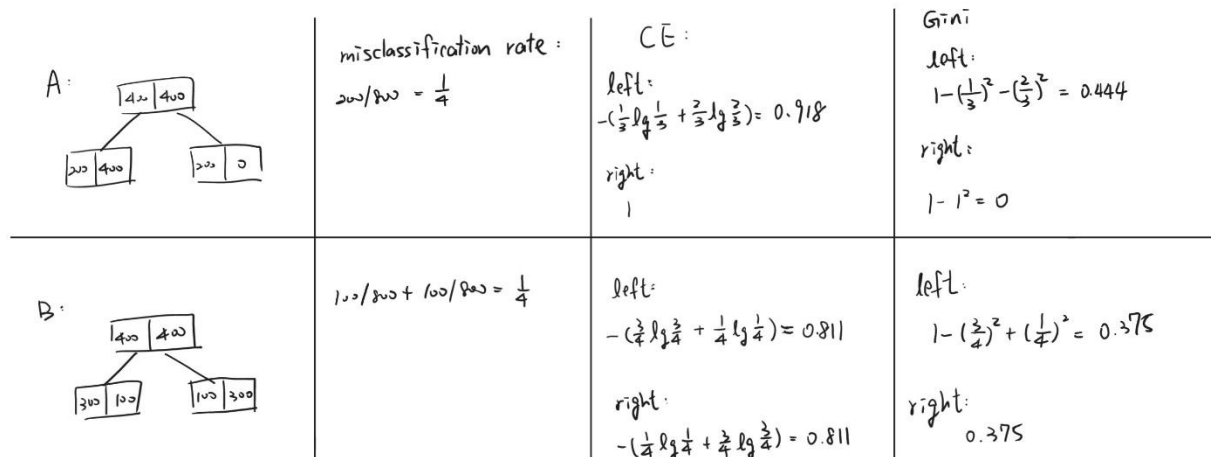 A:
400 400
200 400
200 0
misclassification rate:
200/800 = 1/4
CE:
left:
-(1/3 lg 1/3 + 2/3 lg 2/3) = 0.918
right:
1
Gini
left:
1-(1/3)² -(2/3)² = 0.444
right:
1- 1² = 0
B:
400 400
300 100
100 300
100/800 + 100/800 = 1/4
left:
-(3/4 lg 3/4 + 1/4 lg 1/4) = 0.811
right:
-(1/4 lg 1/4 + 3/4 lg 3/4) = 0.811
left:
1-(3/4)² + (1/4)² = 0.375
right:
0.375